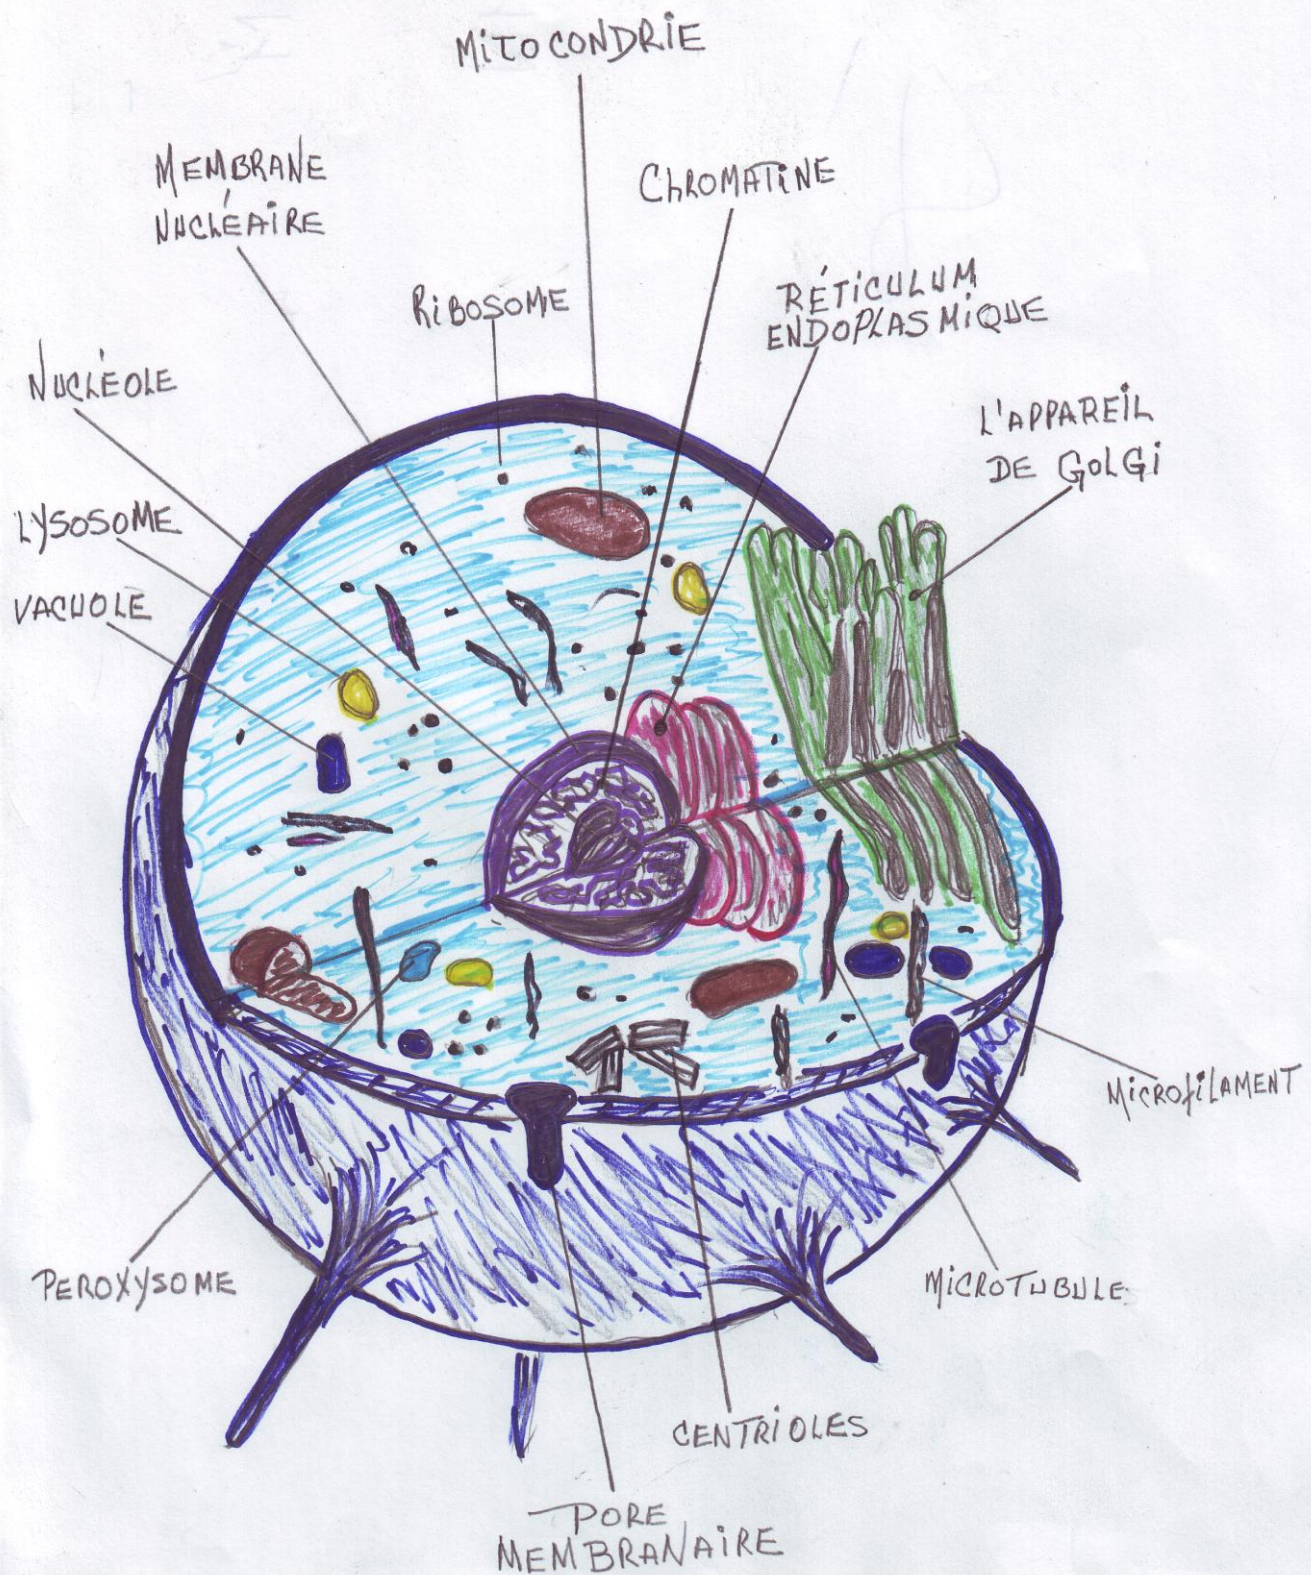 MITOCONDRIE
MEMBRANE
NUCLÉAIRE
CHROMATINE
RIBOSOME
RÉTICULUM
ENDOPLASMIQUE
NUCLÉOLE
L'APPAREIL
DE GOLGI
LYSOSOME
VACUOLE
MICROFILAMENT
PEROXYSOME
MICROTUBULE
CENTRIOLES
PORE
MEMBRANAIRE